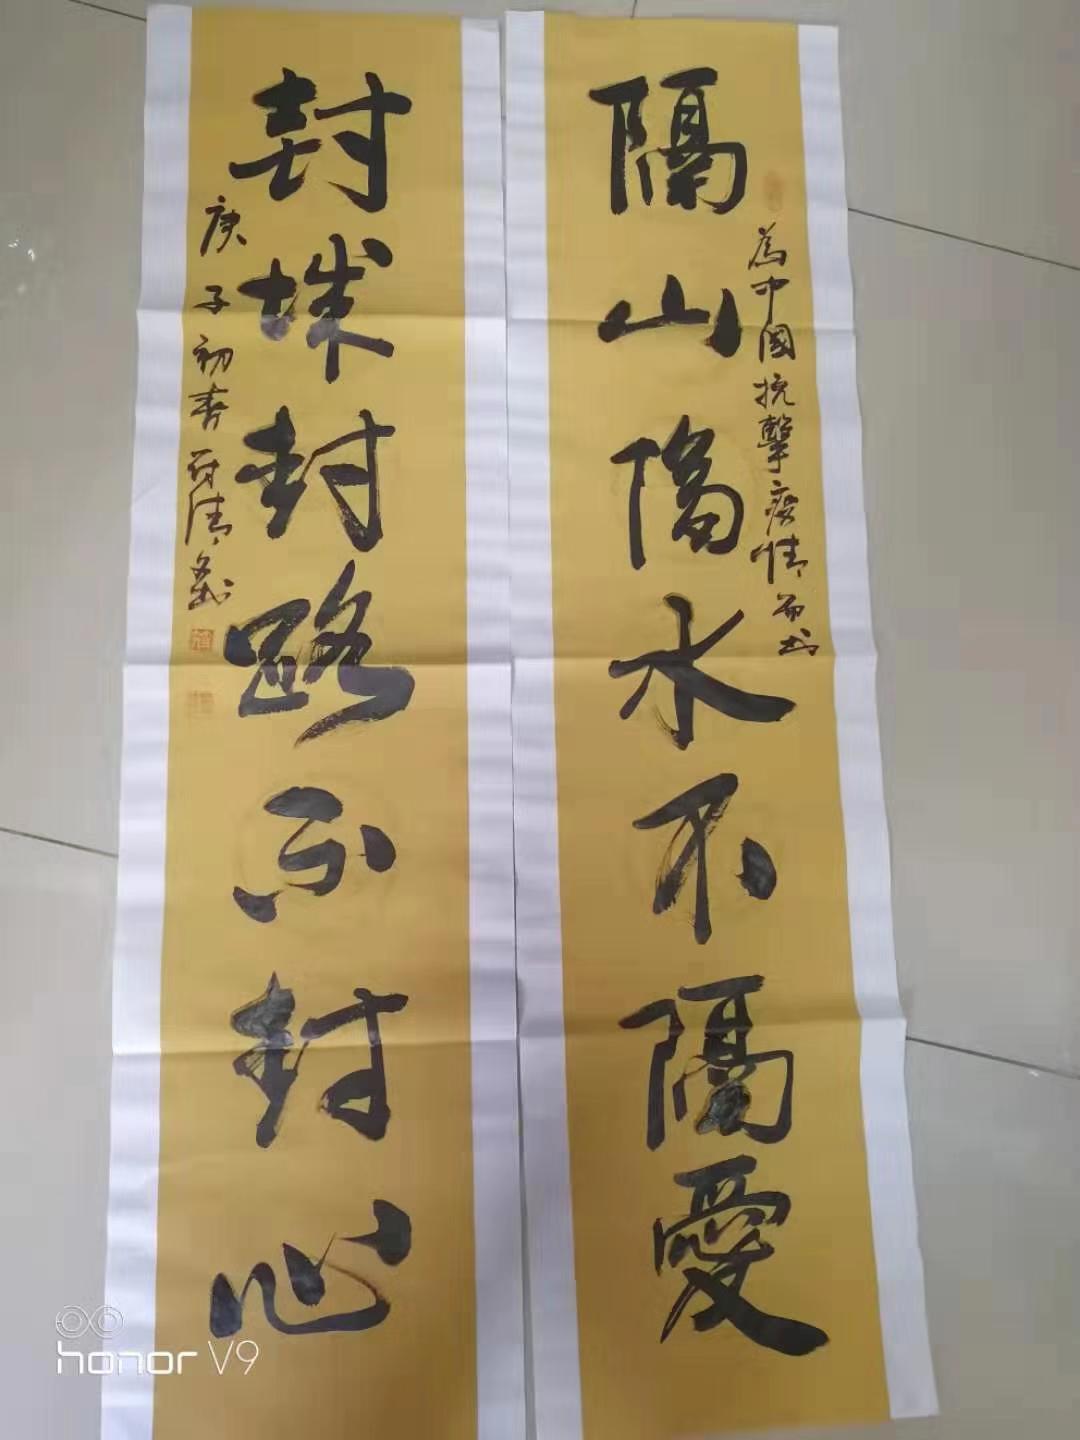 隔山隔水不隔愛
為中國抗擊疫情而書
封城封路不封心
庚子初春
honor V9